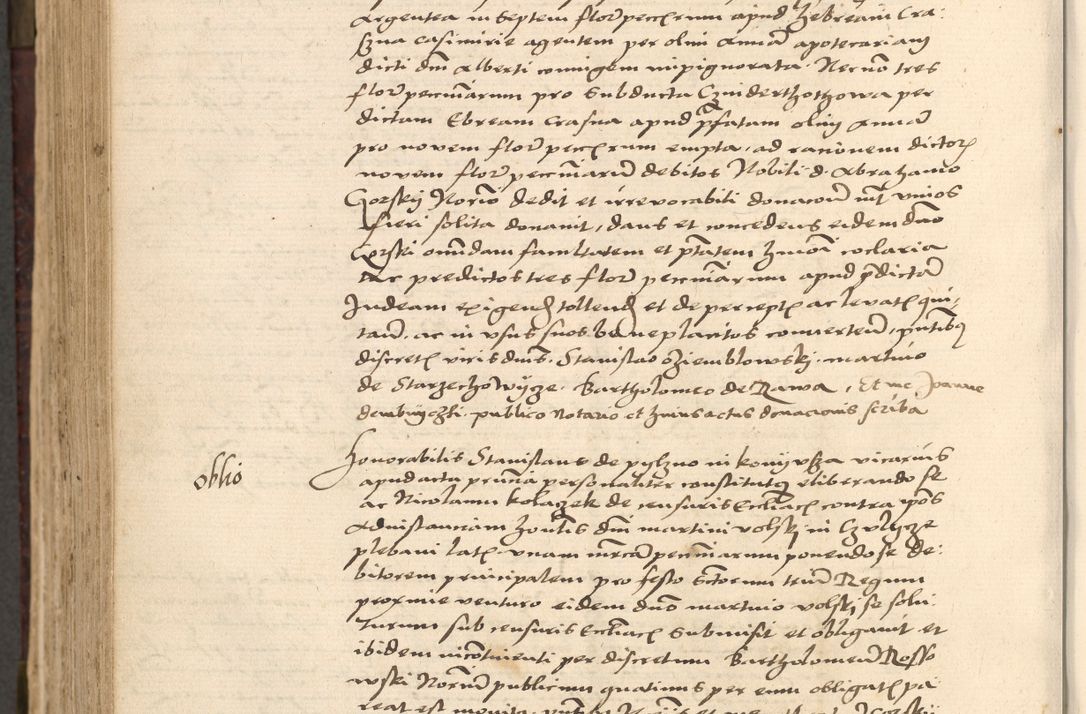 argentea in septem flor pecc̃rum apud hebream Cra:
szna casimirie agentem per olim Annã apotecariam
dicti dm̃ Alberti coniugem impignorata. Nec nõ tres
flor̃ pecuniarum pro subducta Czwiderthothowa per
dictam Ebream Crasna apud p̃fatam olim Annã
pro novem flor̃ pecc̃rum empta, ad racionem dictor̃
novem flor̃ pecuniariũ debitos Nobili d. Abrahamo
Gorskij Norio dedit et irrevocabili donacõe int̃ vivos
fieri solita donavit, dans et concedens eidem dño
Gorski omñdam facultatem et ptãtem hm̃oi coclaria
ac predictos tres flor̃ pecuniarum apud p̃dictã
Judeam exigend tollend et de percept ac levat qui,
tand̃, ac in usus suos beneplacitos convertend̃, pñtibq
discret viris dnis. Stanislao Ziemblowskj. martino
de Starzechowycze. Bartholomeo de Rawa, Et me Joanne
dembyczki publico notario et huius actus donacionis scriba
oblio
Honorabilis Stanislaus de pylzno in konyusza vicarius
apud acta prñcia personaliter constitutq eliberando se
ac Nicolaum kolaczek de censuris Eccliac contra ipõs
Ad instanciam honlis dm̃ martini volskj in Czulycze
plebani lat unam mrcã pecuniarum ponendo se de:
bitorem principalem pro festo Sctorum triũ Regum
proxime venturo eidem dño martino volskj se solu:
turum sub censuris Eccliac submisit et obligavit et
ibidem incontinenti per discretum Bartholomeũ Rosso
wski Noriũ publicum quatinus per eum obligat pa
reat est monitq